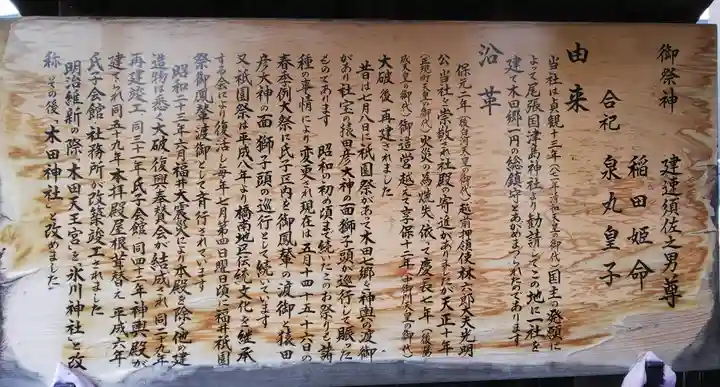 御祭神 建速須佐之男尊
稲田姫命
合祀 泉丸皇子
由来
当社は貞観十三年(八七一年清和天皇御代)国主の発願に
よって尾張国津島神社より勧請してこの地に一社を
建て木田郷一円の総鎮守とあがめまつられたのであります
沿革
保元二年(後白河天皇の御代)越前押領使林六郎大夫光明
公当社を崇敬され社殿の寄進がありましたが天正十年
(正親町天皇の御代)火災の為焼失、依って慶長七年(後陽
成天皇の御代)御造営の越えて享保十二年(中御門天皇の御代)
大破後、再建されました
昔は六月八日に祇園祭があって木田七郷を神輿の渡御
があり社宝の猿田彦大神の面、獅子頭が巡行して賑った
ものであります 昭和の初め頃まで続いたこのお祭りも諸
種の事情により変更され現在は五月十四・十五・十六日の
春季例大祭に氏子区内を御鳳輦の渡御と猿田
彦大神の面、獅子頭の巡行として続いています
又、祇園祭は平成八年より橋南地区伝統文化を継承
する会により復活し毎年七月第四日曜日頃に福井祇園
祭御鳳輦渡御として斉行されています
昭和二十三年六月福井大震災により本殿を除く他の建
造物は悉く大破、復興奉賛会が結成され同二十九年
再建竣工、同三十一年氏子会館、同四十二年神輿殿が
建てられ同五十九年本拝殿屋根葺替え、平成六年
氏子会館、社務所が改築竣工されました
明治維新の際、木田天王宮を「氷川神社」と改
称、その後、「木田神社」と改めました